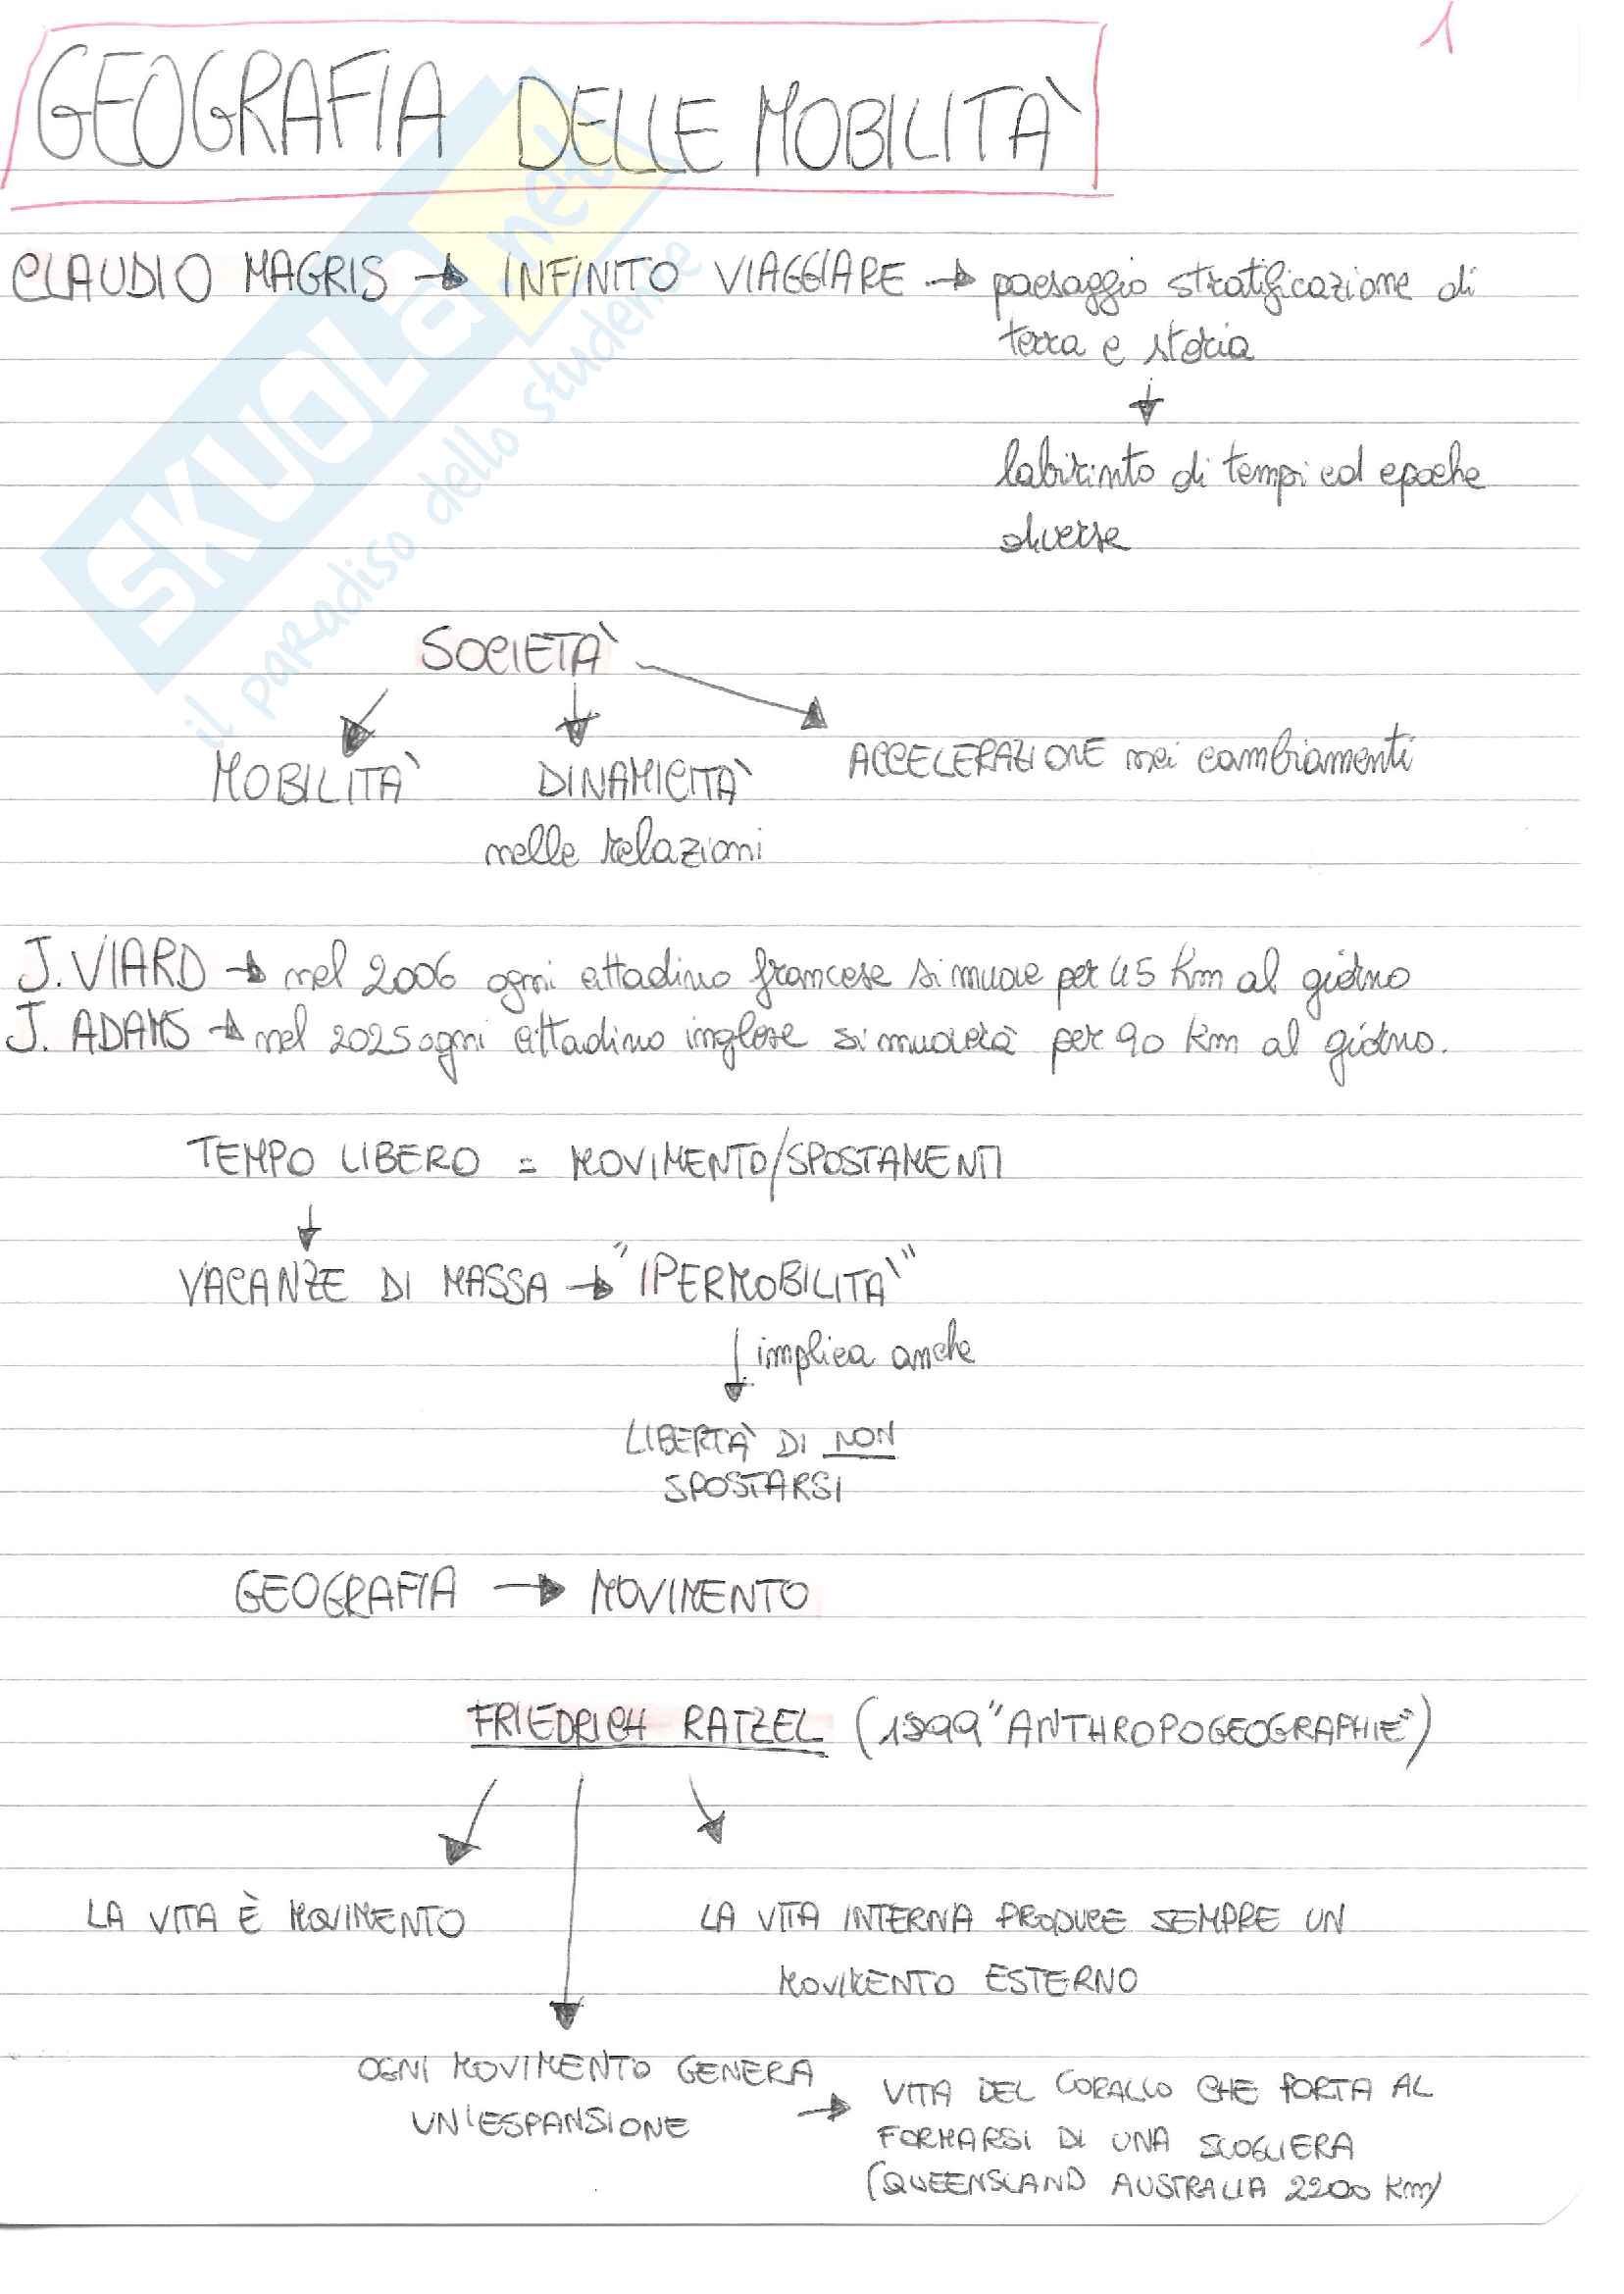 1
GEOGRAFIA DELLE MOBILITÀ
CLAUDIO MAGRIS → INFINITO VIAGGIARE → paesaggio stratificazione di
terra e storia
↓
labirinto di tempi ed epoche
diverse
SOCIETÀ
MOBILITÀ DINAMICITÀ ACCELERAZIONE nei cambiamenti
nelle relazioni
J. VIARD → nel 2006 ogni cittadino francese si muove per 45 Km al giorno
J. ADAMS → nel 2025 ogni cittadino inglese si muoverà per 90 Km al giorno.
TEMPO LIBERO = MOVIMENTO/SPOSTAMENTI
↓
VACANZE DI MASSA → "IPERMOBILITÀ"
↓ implica anche
LIBERTÀ DI NON
SPOSTARSI
GEOGRAFIA → MOVIMENTO
FRIEDRICH RATZEL (1899 "ANTHROPOGEOGRAPHIE")
LA VITA È MOVIMENTO LA VITA INTERNA PRODUCE SEMPRE UN
MOVIMENTO ESTERNO
OGNI MOVIMENTO GENERA
UN'ESPANSIONE → VITA DEL CORALLO CHE PORTA AL
FORMARSI DI UNA SCOGLIERA
(QUEENSLAND AUSTRALIA 2200 Km)
SKUOLA.net
il paradiso dello studente